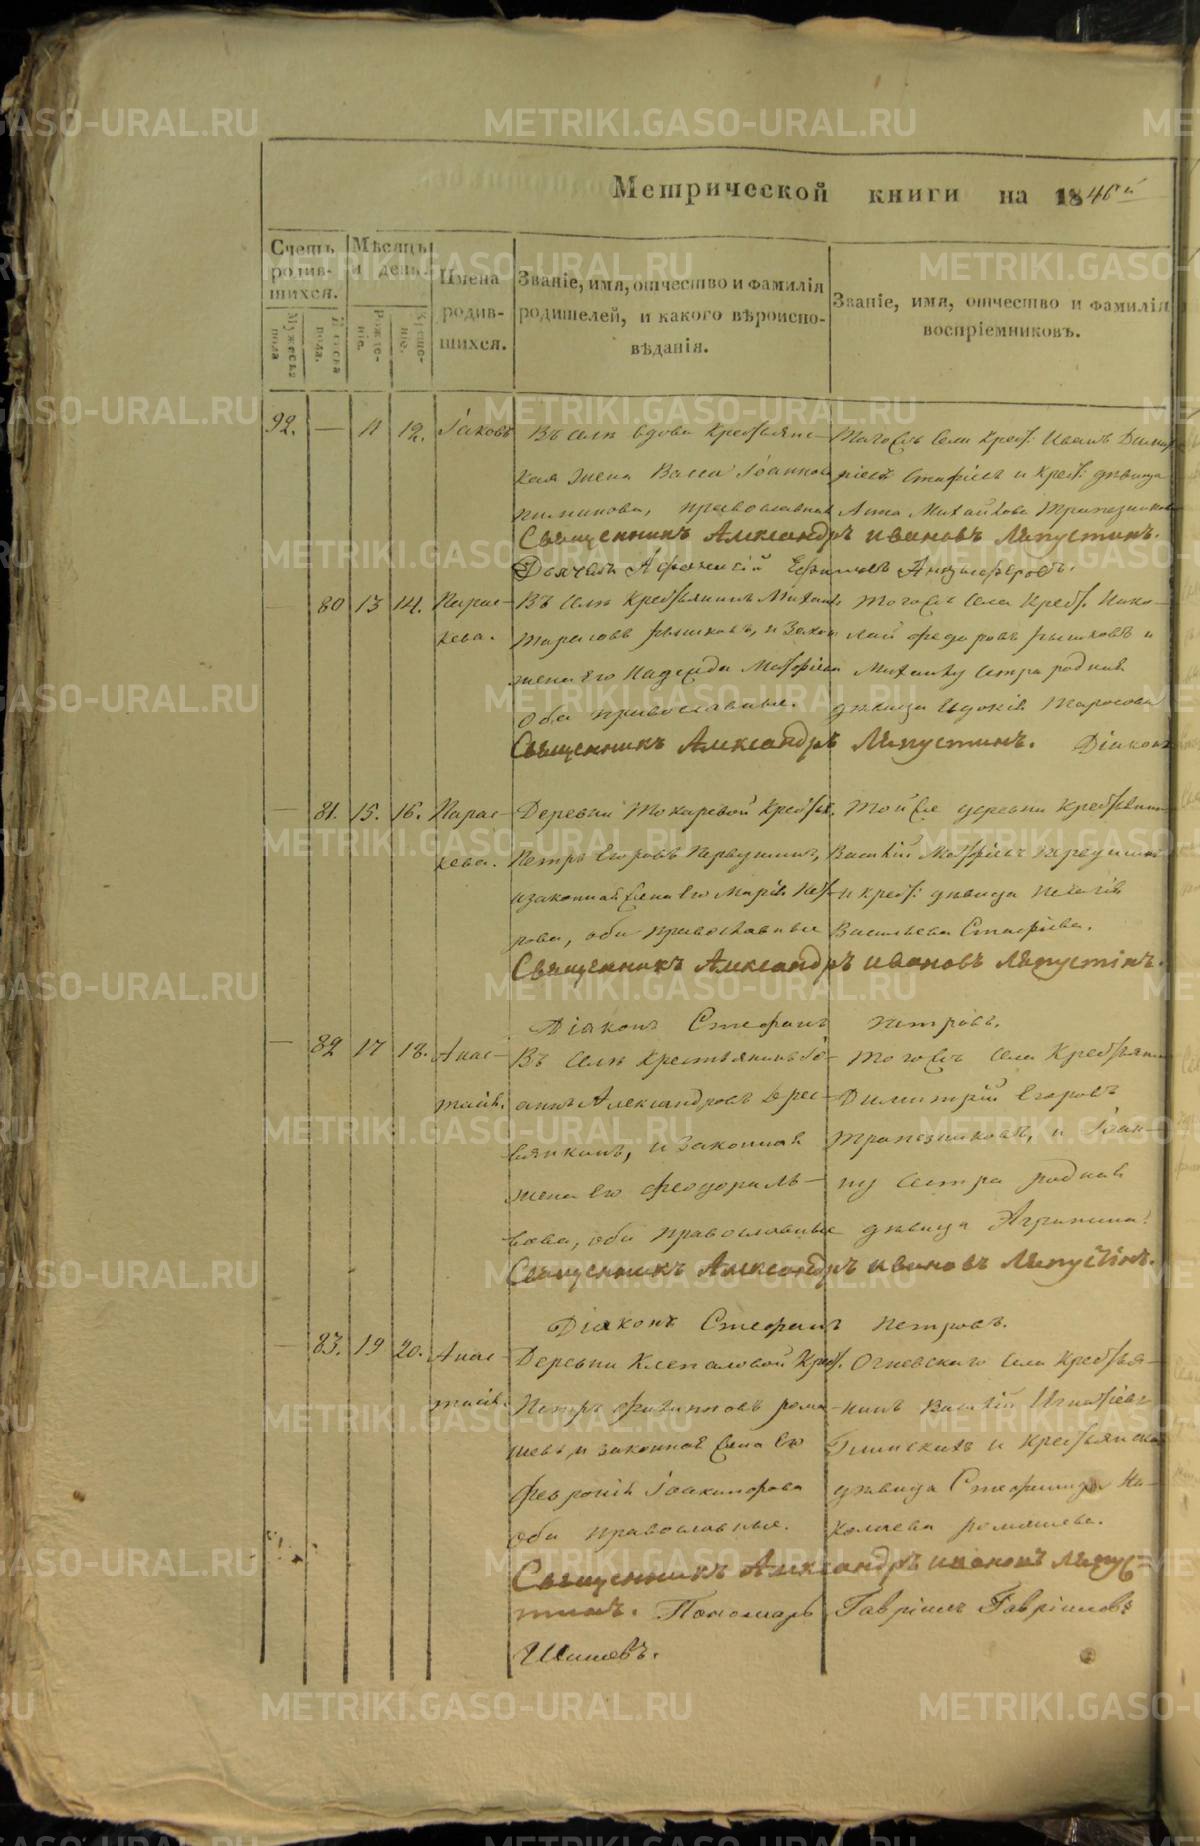 Метрической книги на 1846й
Счетъ родив-шихся.
Мужеска пола
Женска пола.
Мѣсяцъ и день.
Рожде-нiе.
Креще-нiе.
Имена родив-шихся.
Званiе, имя, отчество и фамилiя
родителей, и какого вѣроиспо-
вѣданiя.
Званiе, имя, отчество и фамилiя
воспрiемниковъ.
92. — 11 12. Iаковъ
Въ селѣ вдова Крестьянс-
кая жена Васса Iоаннова
православная
Тогожъ села Крест: Иванъ Димит-
рiевъ и Крест: дѣвица
Анна Михайлова Трапезникова
Священникъ Александръ Ивановъ Ляпустинъ.
Дьячекъ Афанасiй Ефимовъ Анцыферовъ.
— 80 13 14. Парас-
кева.
Въ селѣ Крестьянинъ Михаилъ
Тарасовъ и закон
жена его Надежда
Оба православные.
Тогожъ села Крест. Нико-
лай Федоровъ и
Михаилу сестра родная
дѣвица Евдокiя Тарасова
Священникъ Александръ Ляпустинъ. Дiаконъ
— 81. 15. 16. Парас-
кева.
Деревни Токаревой Крестья.
Петръ Егоровъ Первушинъ,
и законная жена его Марiя Пет-
рова, оба православные
Той же деревни Крестьянинъ
Василiй Первушинъ
и Крест: дѣвица Пелагiя
Васильева
Священникъ Александръ Ивановъ Ляпустiнъ.
Дiаконъ Стефанъ Петровъ.
— 82 17 18. Анас-
тасiя.
Въ селѣ Крестьянинъ Iо-
аннъ Александровъ Дрес-
вянкинъ, и законная
жена его Феодора Ль-
вова, оба православные
Тогожъ села Крестьянин
Димитрiй Егоровъ
Трапезниковъ, и Iоан-
ну сестра родная
дѣвица Агрипина.
Священникъ Александръ Ивановъ Ляпустiнъ.
Дiаконъ Стефанъ Петровъ.
— 83. 19 20. Анас-
тасiя.
Деревни Клепаловой Крест.
Петръ Филипповъ Рома-
шевъ, и законная жена его
Феврониiя Iоакимова
Оба православные.
Огневскаго села Крестья-
нинъ Василiй Игнатiевъ
Глинскихъ и Крестьянска
дѣвица Стефанида Ни-
колаева Ромашева.
Священникъ Александръ Ивановъ Ляпус=
тинъ. Пономарь Гаврiилъ Гаврiиловъ
Шишевъ.
METRIKI.GASO-URAL.RU